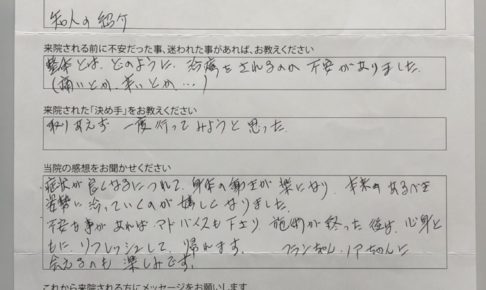 知人の紹介
来院される前に不安だった事、迷われた事があれば、お教えください
整体とは、どのように、治療をされるのか不安がありました。
(痛いとか、辛いとか…)
来院された「決め手」をお教えください
取りあえず 一度行ってみようと思った。
当院の感想をお聞かせください
症状が良くなるにつれて、身体の動きが楽になり、本来のあるべき
姿勢に治っていくのが嬉しくなりました。
不安な事があれば アドバイスも下さり 施術が終った後は、心身と
もに、リフレッシュして、帰れます。 フランちゃん、ノアちゃんに
会えるのも 楽しみです。
これから来院される方にメッセージをお願いします